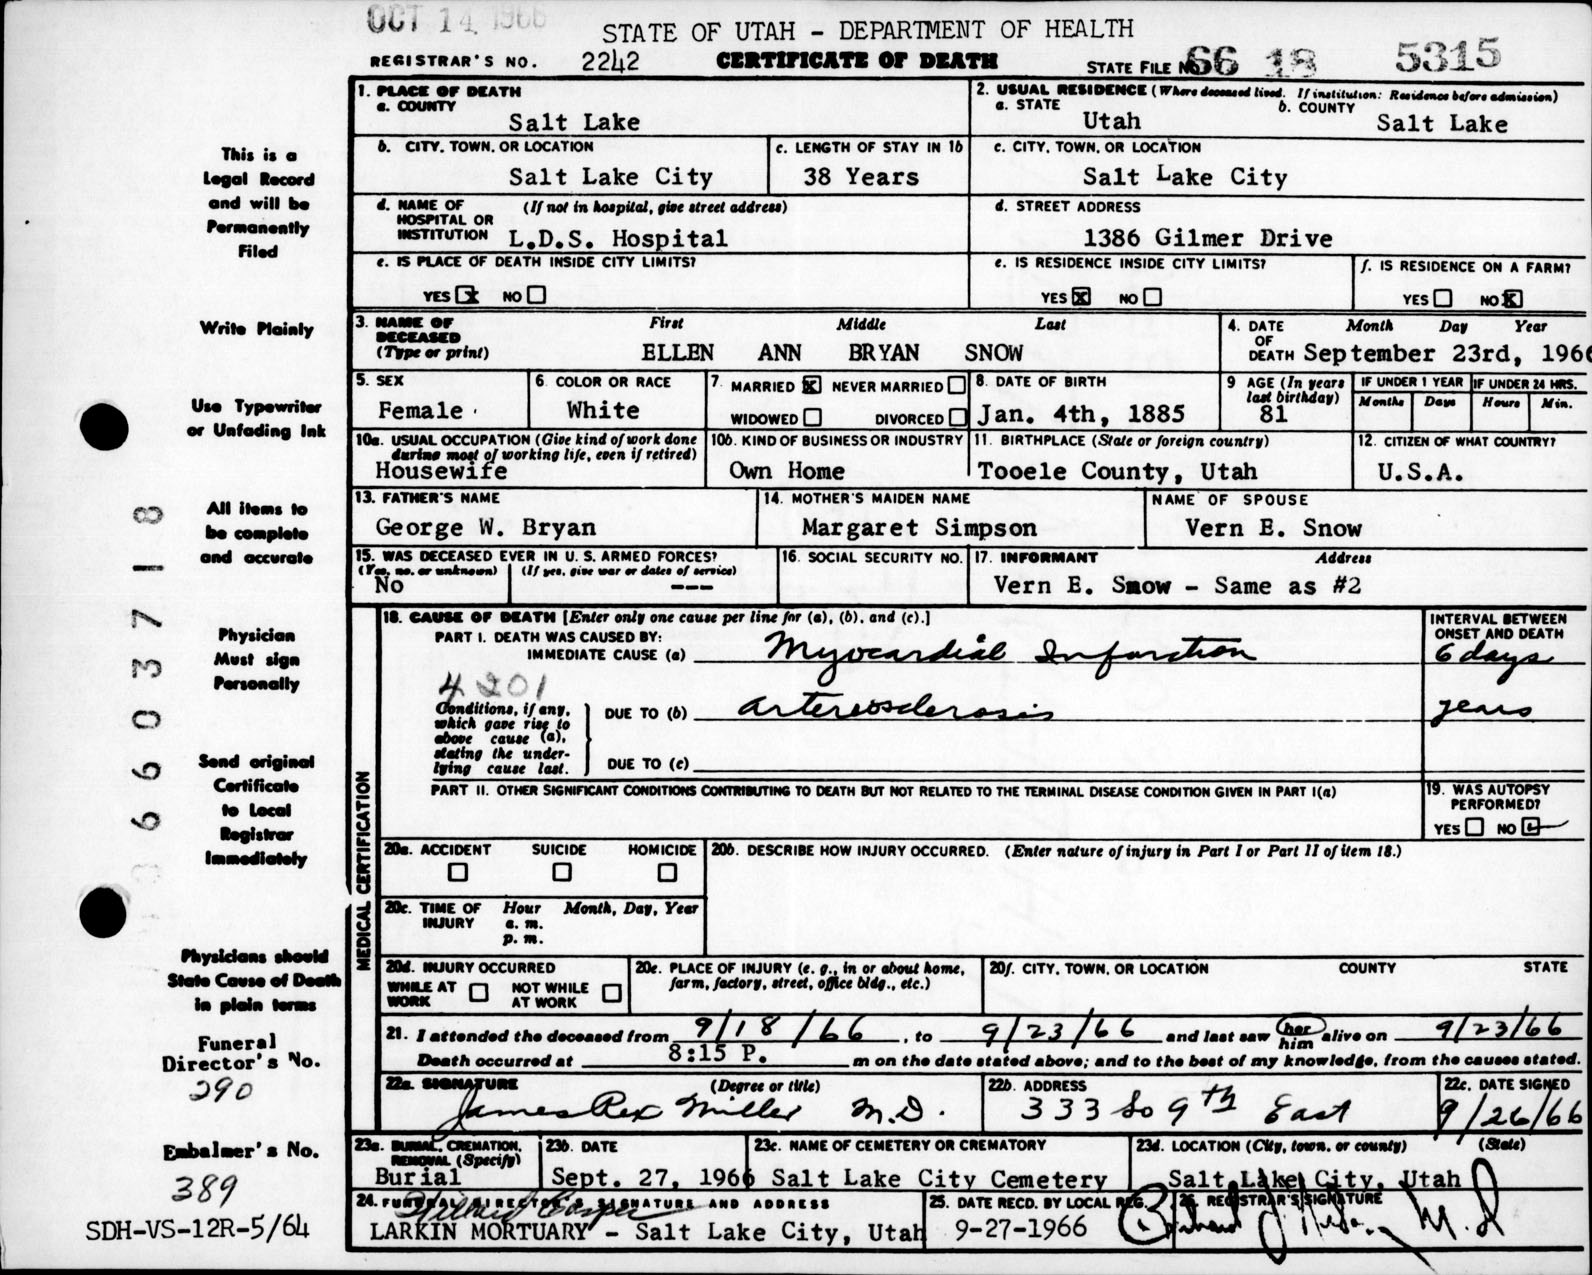 OCT 14 1966
STATE OF UTAH - DEPARTMENT OF HEALTH
REGISTRAR'S NO. 2242 CERTIFICATE OF DEATH STATE FILE NO. 66 18 5315
1. PLACE OF DEATH
a. COUNTY
Salt Lake
2. USUAL RESIDENCE (Where deceased lived. If institution: Residence before admission)
a. STATE b. COUNTY
Utah Salt Lake
b. CITY, TOWN, OR LOCATION
Salt Lake City
c. LENGTH OF STAY IN 1b
38 Years
c. CITY, TOWN, OR LOCATION
Salt Lake City
d. NAME OF HOSPITAL OR INSTITUTION (If not in hospital, give street address)
L.D.S. Hospital
d. STREET ADDRESS
1386 Gilmer Drive
e. IS PLACE OF DEATH INSIDE CITY LIMITS?
YES x NO
e. IS RESIDENCE INSIDE CITY LIMITS?
YES x NO
f. IS RESIDENCE ON A FARM?
YES NO x
3. NAME OF DECEASED (Type or print) First Middle Last
ELLEN ANN BRYAN SNOW
4. DATE OF DEATH Month Day Year
September 23rd, 1966
5. SEX
Female
6. COLOR OR RACE
White
7. MARRIED x NEVER MARRIED
WIDOWED DIVORCED
8. DATE OF BIRTH
Jan. 4th, 1885
9 AGE (In years last birthday)
81
IF UNDER 1 YEAR IF UNDER 24 HRS.
Months Days Hours Min.
10a. USUAL OCCUPATION (Give kind of work done during most of working life, even if retired)
Housewife
10b. KIND OF BUSINESS OR INDUSTRY
Own Home
11. BIRTHPLACE (State or foreign country)
Tooele County, Utah
12. CITIZEN OF WHAT COUNTRY?
U.S.A.
13. FATHER'S NAME
George W. Bryan
14. MOTHER'S MAIDEN NAME
Margaret Simpson
NAME OF SPOUSE
Vern E. Snow
15. WAS DECEASED EVER IN U. S. ARMED FORCES?
(Yes, no, or unknown) (If yes, give war or dates of service)
No ---
16. SOCIAL SECURITY NO.
17. INFORMANT Address
Vern E. Snow - Same as #2
MEDICAL CERTIFICATION
18. CAUSE OF DEATH [Enter only one cause per line for (a), (b), and (c).]
INTERVAL BETWEEN ONSET AND DEATH
PART I. DEATH WAS CAUSED BY:
IMMEDIATE CAUSE (a) Myocardial Infarction 6 days
4201
Conditions, if any, which gave rise to above cause (a), stating the underlying cause last.
DUE TO (b) arteriosclerosis years
DUE TO (c)
PART II. OTHER SIGNIFICANT CONDITIONS CONTRIBUTING TO DEATH BUT NOT RELATED TO THE TERMINAL DISEASE CONDITION GIVEN IN PART I(a)
19. WAS AUTOPSY PERFORMED?
YES NO ✓
20a. ACCIDENT SUICIDE HOMICIDE
20b. DESCRIBE HOW INJURY OCCURRED. (Enter nature of injury in Part I or Part II of item 18.)
20c. TIME OF INJURY Hour Month, Day, Year
a. m.
p. m.
20d. INJURY OCCURRED
WHILE AT WORK NOT WHILE AT WORK
20e. PLACE OF INJURY (e. g., in or about home, farm, factory, street, office bldg., etc.)
20f. CITY, TOWN, OR LOCATION COUNTY STATE
21. I attended the deceased from 9/18/66, to 9/23/66 and last saw her him alive on 9/23/66
Death occurred at 8:15 P. m on the date stated above; and to the best of my knowledge, from the causes stated.
22a. SIGNATURE (Degree or title)
James Rex Miller M.D.
22b. ADDRESS
333 So 9th East
22c. DATE SIGNED
9/26/66
23a. BURIAL, CREMATION, REMOVAL (Specify)
Burial
23b. DATE
Sept. 27, 1966
23c. NAME OF CEMETERY OR CREMATORY
Salt Lake City Cemetery
23d. LOCATION (City, town, or county) (State)
Salt Lake City, Utah
24. FUNERAL DIRECTOR'S SIGNATURE AND ADDRESS
LARKIN MORTUARY - Salt Lake City, Utah
25. DATE RECD. BY LOCAL REG.
9-27-1966
26. REGISTRAR'S SIGNATURE
M.D
This is a
Legal Record
and will be
Permanently
Filed
Write Plainly
Use Typewriter
or Unfading Ink
All items to
be complete
and accurate
Physician
Must sign
Personally
Send original
Certificate
to Local
Registrar
Immediately
Physicians should
State Cause of Death
in plain terms
Funeral
Director's No.
290
Embalmer's No.
389
SDH-VS-12R-5/64
6603718